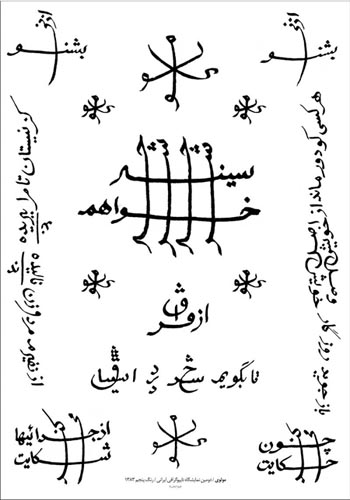 بشنو از نی
بشنو از نی
هر کسی کو دور ماند از اصل خویش
باز جوید روزگار وصل خویش
کز نیستان تا مرا ببریده
از نفیرم مرد و زن نالیده
سینه
شرحه شرحه
خواهم
از فراق
تا بگویم شرح درد اشتیاق
چون حکایت
از جدائیها شکایت
مولوی / دومین نمایشگاه تایپوگرافی ایرانی / رنگ پنجم ۱۳۸۳